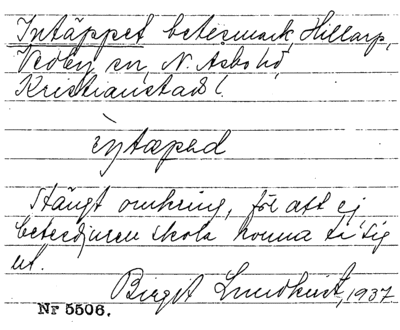 Intäppet betesmark, Hillarp,
Vedby sn, N. Åsbo hd,
Kristianstads l.
Stängt omkring, för att ej
betesdjuren skola kunna ta sig
ut.
Birgit Lundkvist, 1937
Nr 5506.